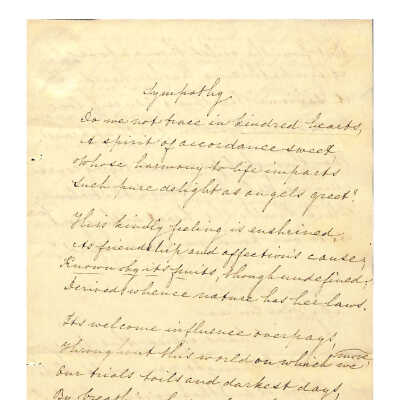 Sympathy.
Do we not trace in kindred hearts,
A spirit of accordance sweet
Whose harmony to life imparts
Such pure delight as angels greet!
This kindly feeling is enshrined
As friendship and affection's cause;
Known by its fruits, though undefined;
Derived whence nature has her laws.
Its welcome influence overpays
Throughout this world on which we move
Our trials toils and darkest days,
By